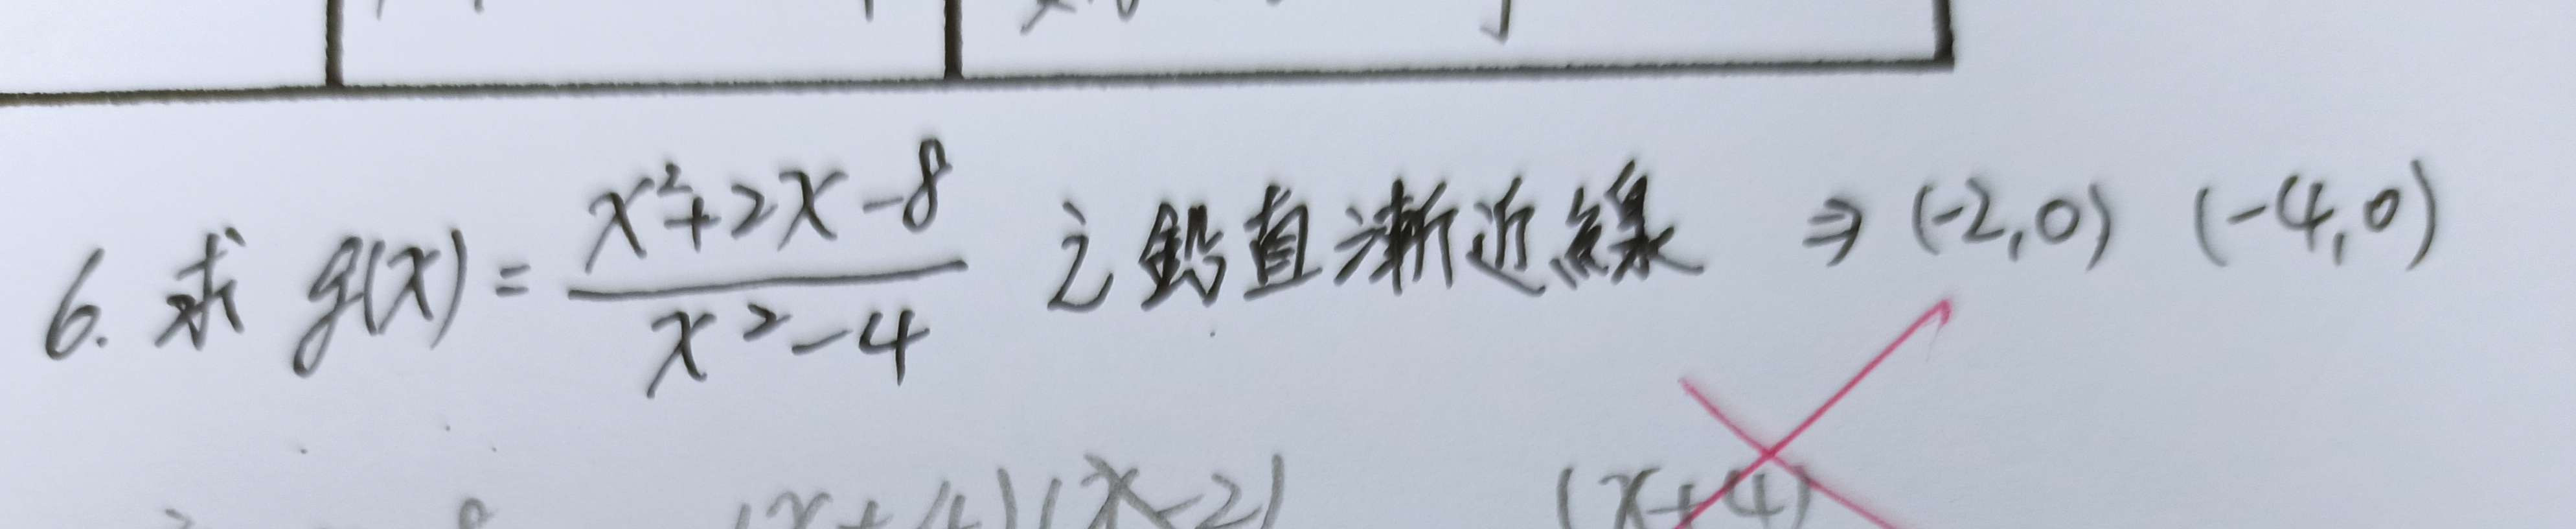 6. 求 g(x) = \frac{x^2+2x-8}{x^2-4} 之鉛直漸近線 ⇒ (-2,0) (-4,0)
(x+4)(x-2) (x+4)